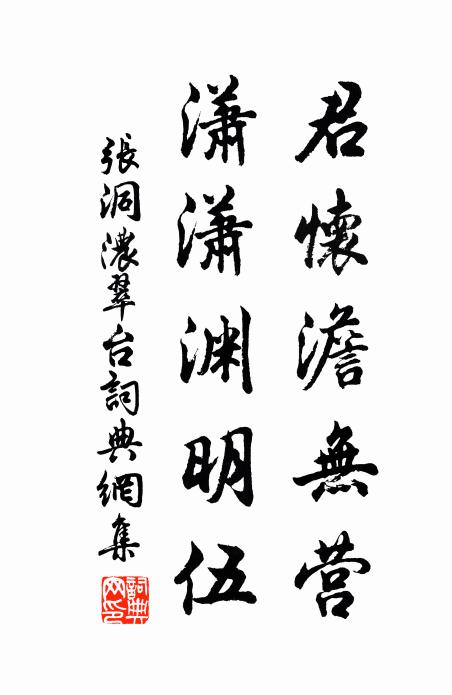 君懷澹無营
瀟瀟渊明伍
張洞濃翠台詞典網集
詞典网印